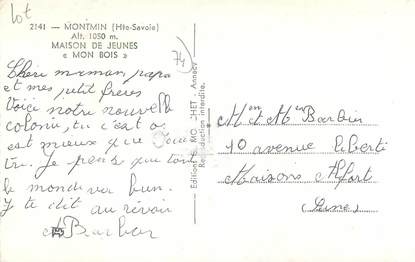 lot
2141 — MONTMIN (Hte-Savoie)
Alt. 1050 m.
MAISON DE JEUNES
« MON BOIS »
74
Chère maman, papa
et mes petit frères
Voici notre nouvelle
colonie, tu c'est
est mieux que
Je pense que tout
le monde va bien.
Je te dit au revoir
Barbier
Editions MO CHET - Annecy
Reproduction interdite.
Mme et M Barbier
10 avenue liberté
Maisons Alfort
(Seine)